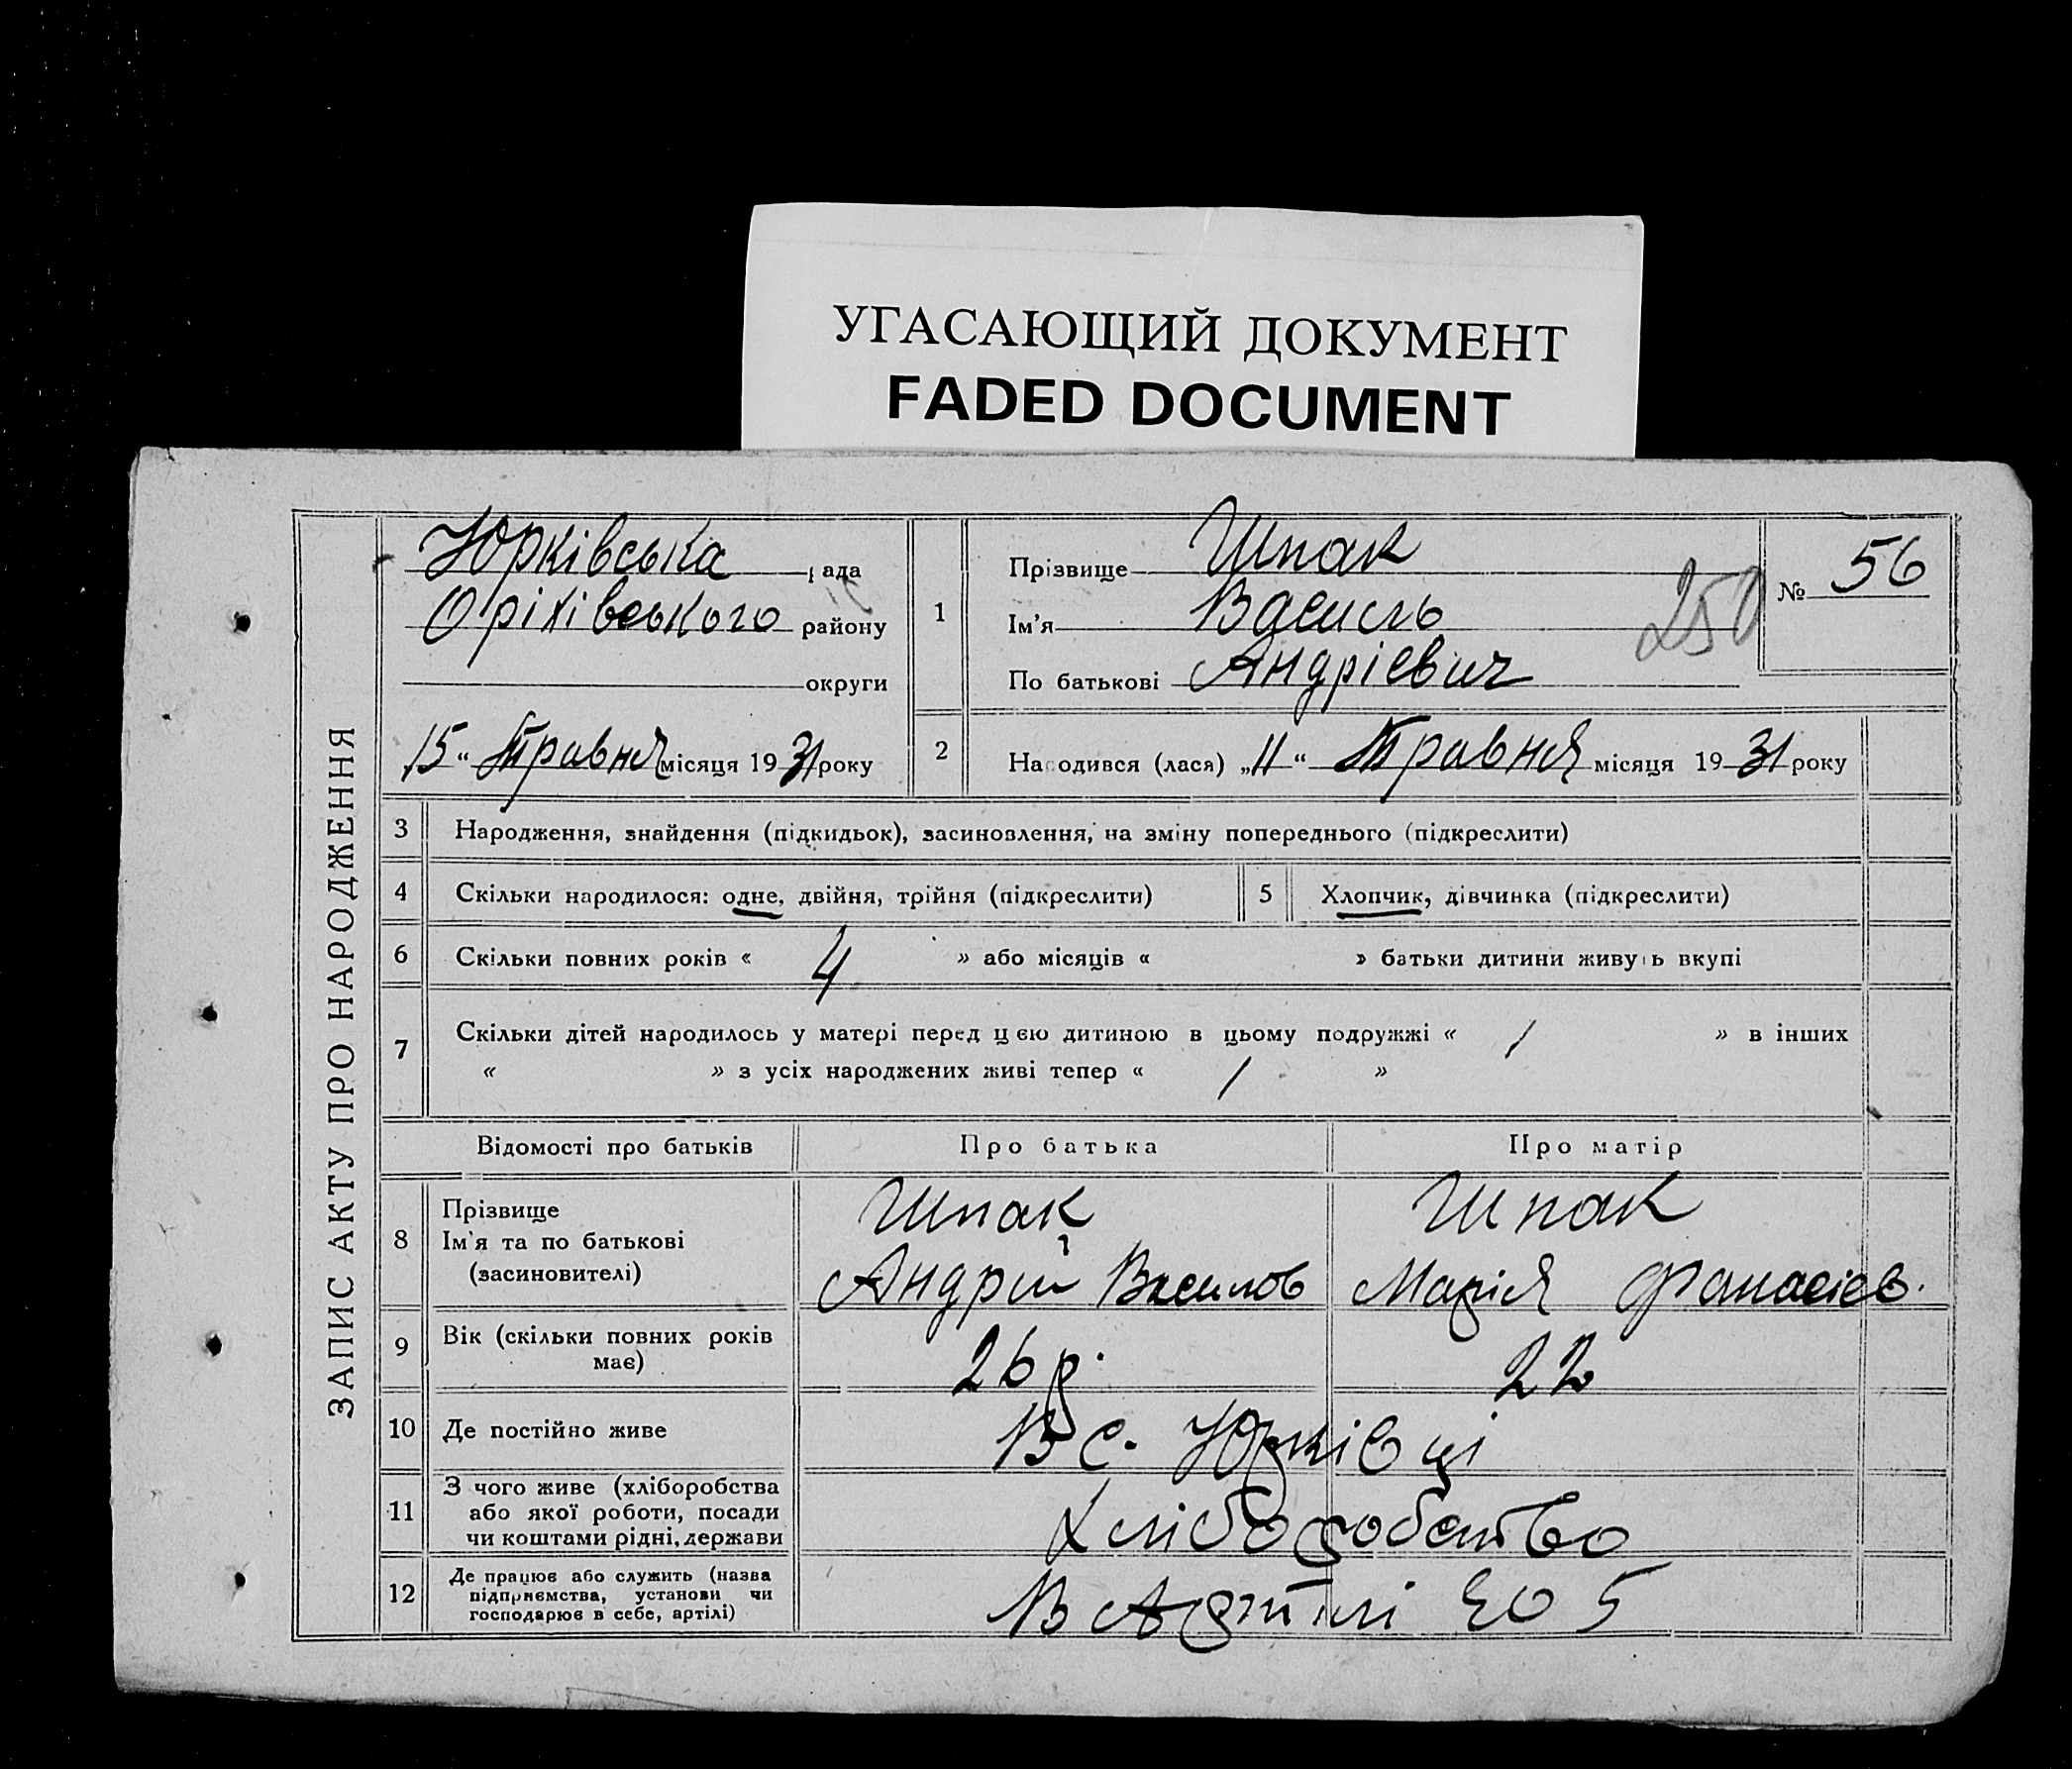 УГАСАЮЩИЙ ДОКУМЕНТ
FADED DOCUMENT
ЗАПИС АКТУ ПРО НАРОДЖЕННЯ
Юрківська рада
Оріхівського району
округи
15 " Травня місяця 1931 року
1
Прізвище Шпак
Ім'я Василь
По батькові Андрієвич
250
№ 56
2
Народився (лася) „11“ Травня місяця 1931 року
3 Народження, знайдення (підкидьок), засиновлення, на зміну попереднього (підкреслити)
4 Скільки народилося: одне, двійня, трійня (підкреслити)
5 Хлопчик, дівчинка (підкреслити)
6 Скільки повних років « 4 » або місяців « » батьки дитини живуть вкупі
7 Скільки дітей народилось у матері перед цією дитиною в цьому подружжі « 1 » в інших
« » з усіх народжених живі тепер « 1 »
Відомості про батьків Про батька Про матір
8 Прізвище
Ім'я та по батькові
(засиновителі)
Шпак
Андрій Василов
Шпак
Марія Фанасієв.
9 Вік (скільки повних років
має)
26 р. 22
10 Де постійно живе В с. Юрківці
11 З чого живе (хліборобства
або якої роботи, посади
чи коштами рідні, держави
Хліборобство
12 Де працює або служить (назва
підприємства, установи чи
господарює в себе, артілі)
В Артілі